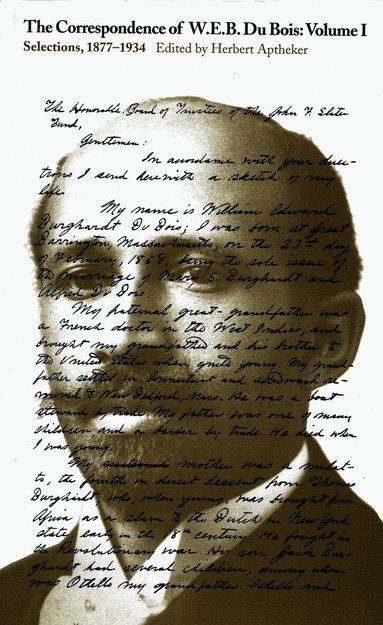 The Correspondence of W.E.B. Du Bois: Volume I
Selections, 1877–1934 Edited by Herbert Aptheker
The Honorable Board of Trustees of the John F. Slater
Fund,
Gentlemen:
In accordance with your direc-
tions I send herewith a sketch of my
life.
My name is William Edward
Burghardt Du Bois; I was born at Great
Barrington, Massachusetts, on the 23rd day
of February, 1868, being the sole issue of
the marriage of Mary S. Burghardt and
Alfred Du Bois.
My paternal great-grandfather was
a French doctor in the West Indies, and
brought my grandfather and his brother to
the United States when quite young. My grand-
father settled in Connecticut and afterward re-
moved to New Bedford, Mass. He was a boat
steward by trade. My father was one of many
children, and a barber by trade. He died when
I was young.
My mother was a mulat-
to, the fourth in direct descent from Thomas
Burghardt, who, when young, was brought from
Africa as a slave to the Dutch in New York
state, early in the 18th century. He fought in
the Revolutionary war. His son Jack Bur-
ghardt had several children, among whom
was Othello my grandfather. Othello and